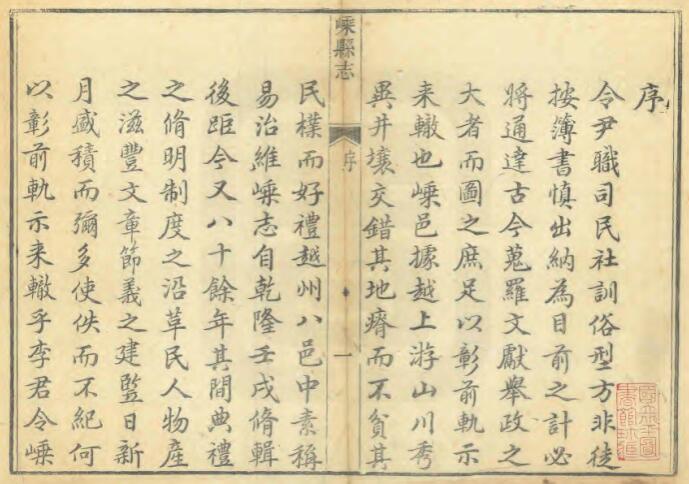 序
令尹職司民社訓俗型方非徒
按簿書慎出納為目前之計必
將通達古今蒐羅文獻舉政之
大者而圖之庶足以彰前軌示
来轍也嵊邑據越上游山川秀
異井壤交錯其地瘠而不貧其
嵊縣志
序
一
民樸而好禮越州八邑中素稱
易治維嵊志自乾隆壬戌脩輯
後距今又八十餘年其間典禮
之脩明制度之沿革民人物產
之滋豐文章節義之建竪日新
月盛積而彌多使佚而不紀何
以彰前軌示来轍乎李君令嵊